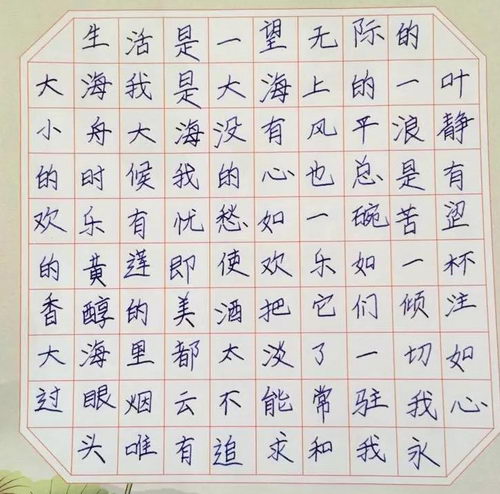 生活是一望无际的
大海我是大海上的一叶
小舟大海没有风平浪静
的时候我的心也总是有
欢乐有忧愁如一碗苦涩
的黄莲即使欢乐如一杯
香醇的美酒把它们倾注
大海里都太淡了一切如
过眼烟云不能常驻我心
头唯有追求和我永